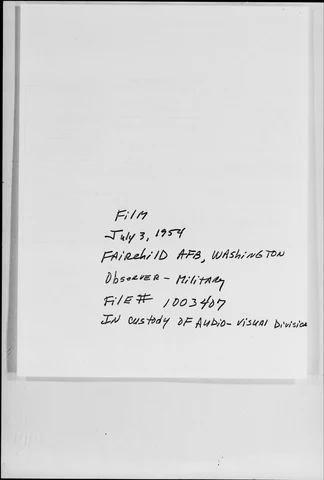 Film
July 3, 1954
FAIRchilD AFB, WAShINGTON
ObseRVER - MilitARy
FilE # 1003407
IN custody OF AUDIO-VISUAL DIVISION